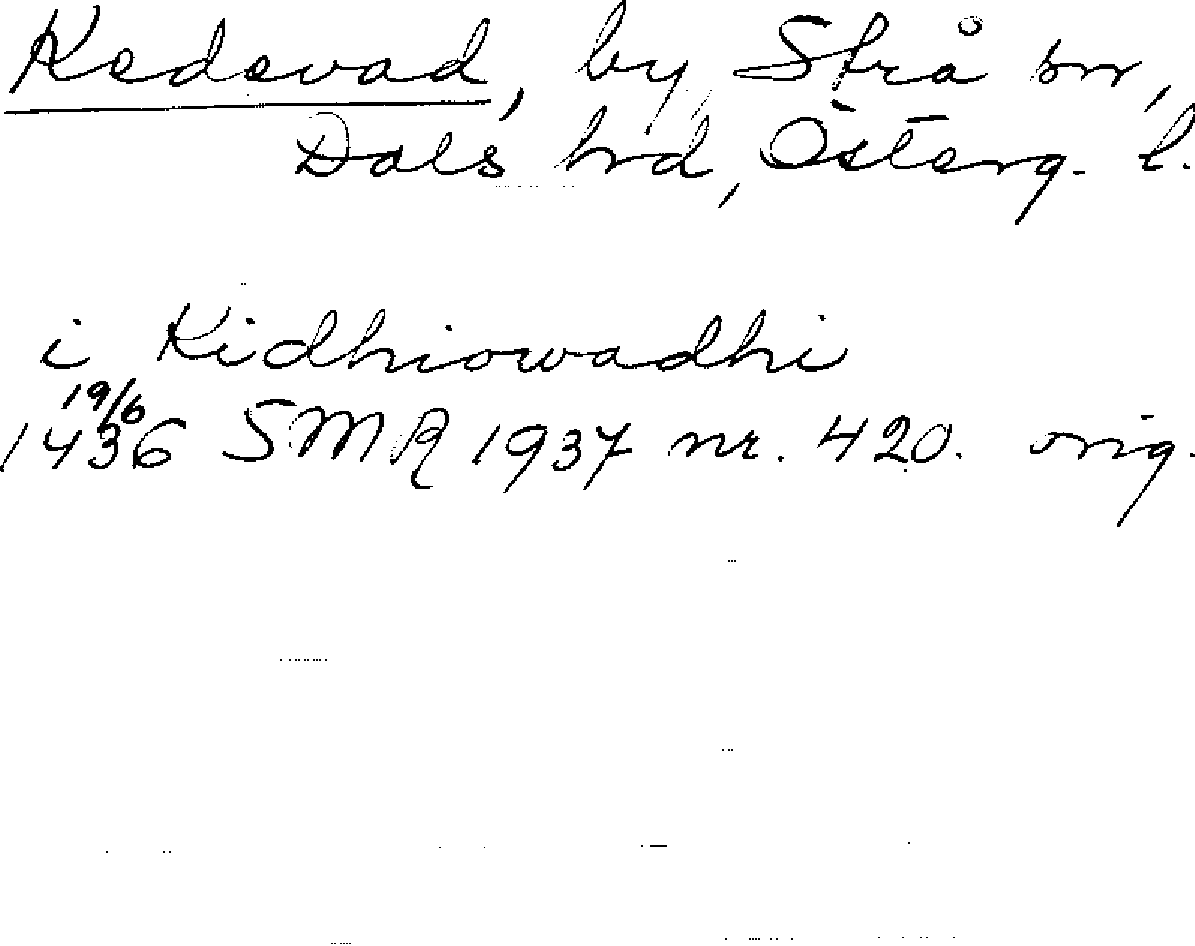 Kedevad, by, Strå sn,
Dals hd, Österg. l.
i Kidhiowadhi
19/6
1436 SMR 1937 nr. 420. orig.